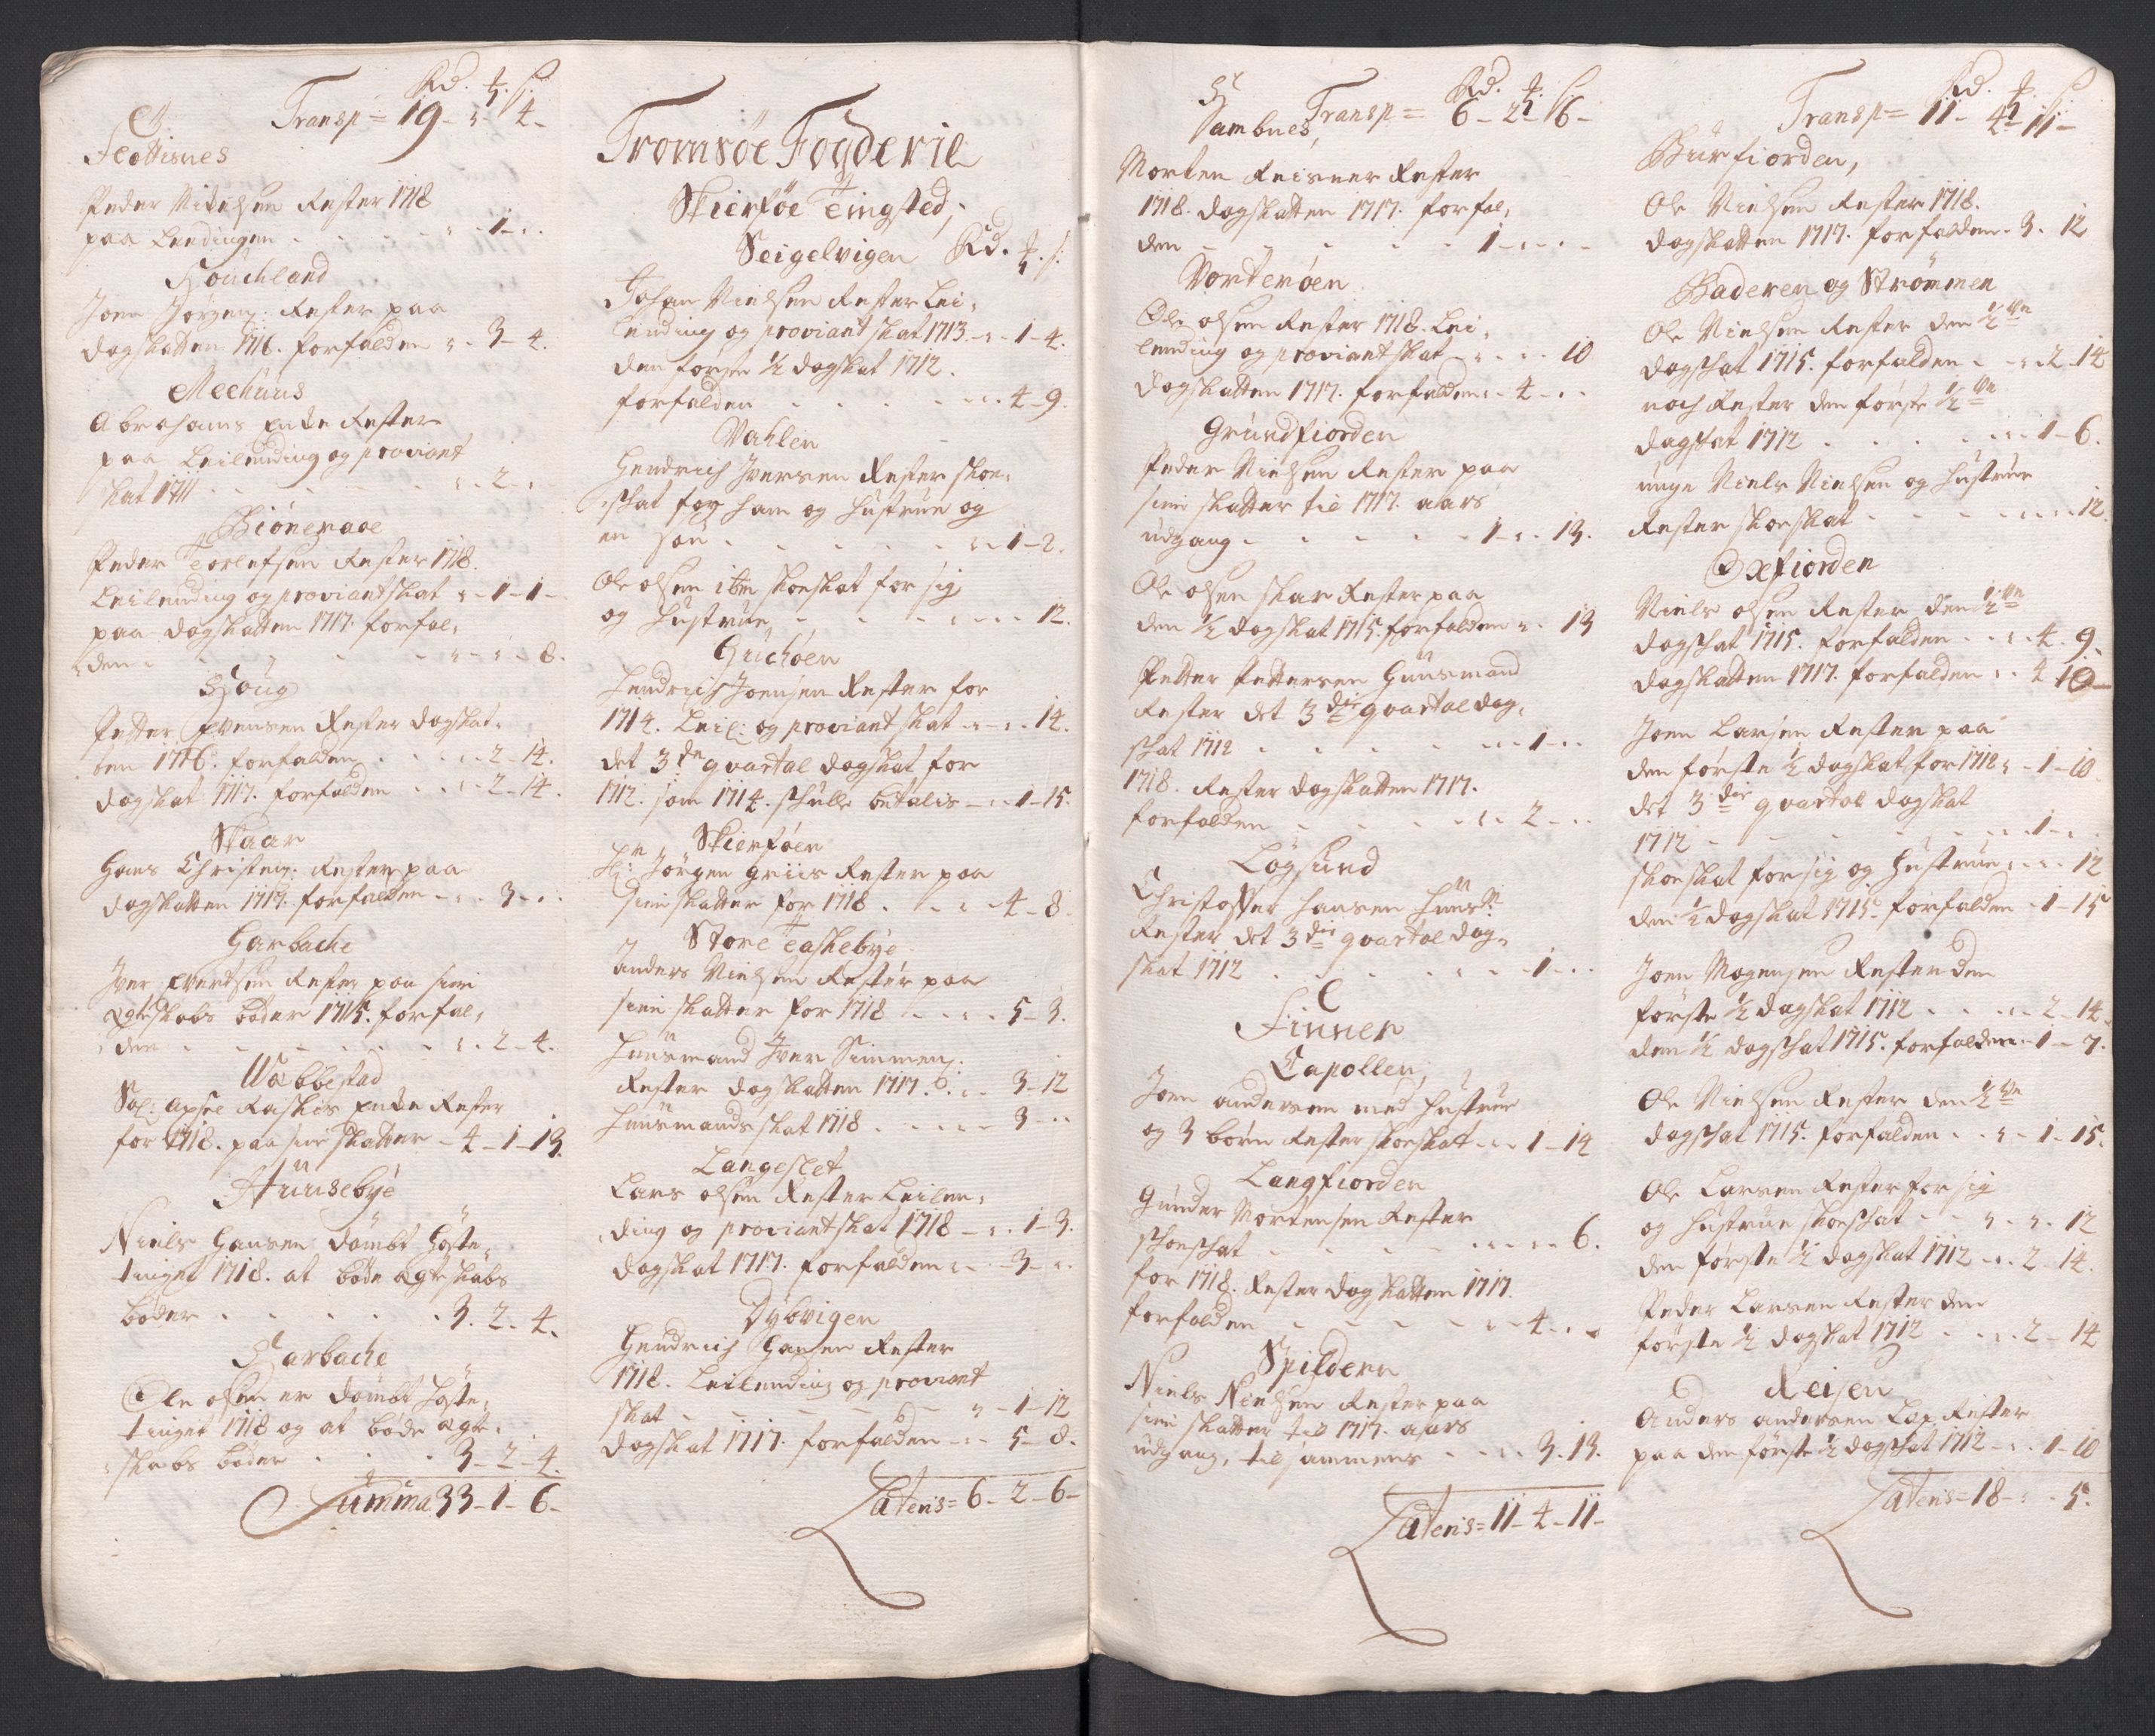 Rd. ₰ ß
Transp = 19 - „ - 4 -
Flottisnes
Peder Nikelsen Rester 1718
paa Leedingen . . . „ - 1 - „
Houchland
Joen Jörgens: Rester paa
dagskatten 1716. forfalden „ - 3 - 4.
Meehuus
Abrahams Enke Rester
paa Leilending og proviant
skat 1711 . . . „ . 2 - „
Peder Torlefsen Rester 1718.
Leilending og proviantskat „ - 1 - 1 -
paa dagskatten 1717. forfal,
den . . . „ - „ - 8.
Houg
Petter Evensen Rester dagskat,
ten 1716. forfalden . . . „ - 2 - 14.
dagskat 1717. forfalden . . „ - 2 - 14.
Skaar
Hans Christens: Rester paa
dagskatten 1717. forfalden - „ - 3 - „
Harbache
Iver Evertsen Rester paa sine
egteskabs böder 1715. forfal,
den . . . „ . 2 - 4.
Wæbbestad
Sal: Rester
for 1718. paa sine skatter - 4 - 1 - 13.
Huusebye
Niels Hansen dömbt Höste,
tinget 1718. at böde egteskabs
böder . . . 3. 2. 4.
Harbache
Ole olsen er dömbt Höste,
tinget 1718 og at böde egte,
skabs böder . . . 3 - 2 - 4.
Summa 33 - 1 - 6 -
Tromsöe Fogderie
Skierföe Tingsted,
Seigelvigen Rd. ₰. ß.
Johan Nielsen Rester Lei,
lending og proviant skat 1713 - „ - 1 - 4.
den første ½ dagskat 1712.
forfalden . . . „ . 4 - 9.
Vahlen
Hendrich Iversen Rester skoe,
skat for ham og Hustrue og
en sön . . . „ - 1 - 2.
Ole olsen ibm skoskat for sig
og Hustrue . . . „ . 12.
Huchöen
Hendrich Joensen Rester for
1714. Leil: og proviant skat - „ - „ - 14.
det 3de qvartal dagskat for
1712. som 1714. skulle betalis - „ - 1 - 15.
Skierföen
Hr: Jörgen griis Rester paa
sine skatter for 1718 . . „ - 4 - 8.
Store Taskebye
Anders Nielsen Rester paa
sine skatter for 1718 . . „ . 5 - 3.
Huusmand Iver Simmens:
Rester dagskatten 1717. „ . 3 - 12
Huusmands skat 1718 . . . 3 - „
Langeslet
Lars olsen Rester Leilen,
ding og proviantskat 1718 - „ . 1 - 3.
dagskat 1717. forfalden „ - 3 - „
Dybvigen
Hendrich Hansen Rester
1718. Leilending og proviant
skat - - - „ - 1 - 12
dagskat 1717. forfalden - „ - 5 - 8.
Lateris = 6 - 2 - 6 -
Rd. ₰. ß
Transp = 6 - 2 - 6 -
Hambnes,
Morten Reisner Rester
1718. dagskatten 1717. forfal,
den - - - 1 - „ - „
Vorteröen
Ole olsen Rester 1718. Lei,
lending og proviantskat - „ . . 10
dagskatten 1717. forfalden „ - 4 - „
Grundfiorden
Peder Nielsen Rester paa
sine skatter til 1717. aars
udgang - - - 1 - „ . 13.
Ole olsen skar Rester paa
den ½ dagskat 1715. forfalden „ . 13
Petter Pettersen Huusmand
Rester det 3die qvartal dag,
skat 1712 . . . „ - 1 - „
1718. Rester dagskatten 1717.
forfalden . . . „ . 2 - „
Lögsund
Christoffer Hansen Huusm:
Rester det 3die qvartal dag,
skat 1712 . . . „ - 1 - „
Finner
Capollen,
Joen andersen med Hustrue
og 3 börn Rester skoskatt . „ . 1 - 14
Langfiorden
Gunder Mortensen Rester
skoeskat . . . „ „ 6.
for 1718. Rester dagskatten 1717.
forfalden . . . „ - 4 - „
Spildern
Niels Nielsen Rester paa
sine skatter til 1717. aars
udgang, tilsammens . . . „ 3. 13.
Lateris = 11 - 4 - 11 -
Rd. ₰. ß
Transp = 11 - 4 - 11 -
Burfiorden,
Ole Nielsen Rester 1718.
dagskatten 1717. forfalden - 3. 12
Baderen og Strömmen
Ole Nielsen Rester den ½de
dagskat 1715. forfalden . - „ 2 - 14
noch Rester den første ½de
dagskat 1712 . . . „ - 1 - 6.
unge Niels Nielsen og Hustrue
Rester skoeskat . . . „ . 12.
Oxfiorden
Niels olsen Rester den ½de
dagskat 1715. forfalden . „ . 4. 9.
dagskatten 1717. forfalden „ . 4 10 -
Joen Larsen Rester paa
den første ½ dagskat for 1712 „ - 1 - 10.
det 3die qvartal dagskat
1712 . . . „ - 1 - „
skoeskat for sig og Hustrue „ . „ 12
den ½ dagskat 1715. forfalden . 1 - 15
Joen Mogensen Rester den
første ½ dagskat 1712 . . „ - 2 - 14.
den ½ dagskat 1715. forfalden - 1 - 7.
Ole Nielsen Rester den ½de
dagskat 1715. forfalden . . „ - 1 - 15.
Ole Larsen Rester for sig
og Hustrue skoeskat . . „ - „ . 12
den første ½ dagskat 1712 - „ . 2 - 14.
Peder Larsen Rester den
første ½ dagskat 1712 . . „ . 2 - 14
Reisen
Anders andersen Lax Rester
paa den første ½ dagskat 1712 - „ . 1 - 10
Lateris = 18 - „ - 5.